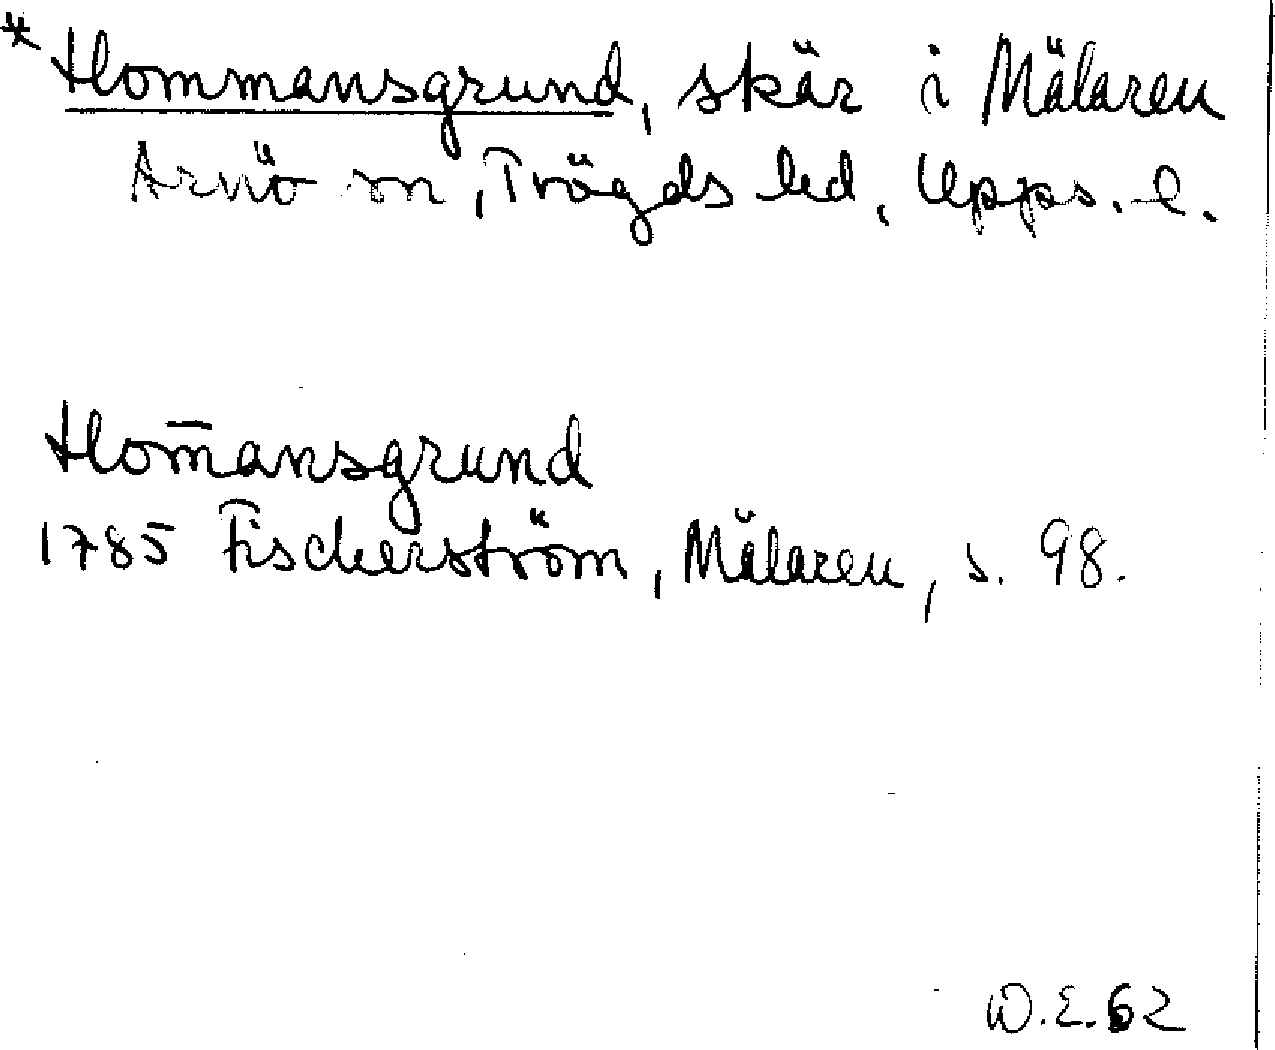 * Hommansgrund, skär i Mälaren
Arnö sn, Trögds hd, Upps. l.
Hom̄ansgrund
1785 Fischerström, Mälaren, s. 98.
W.E.62